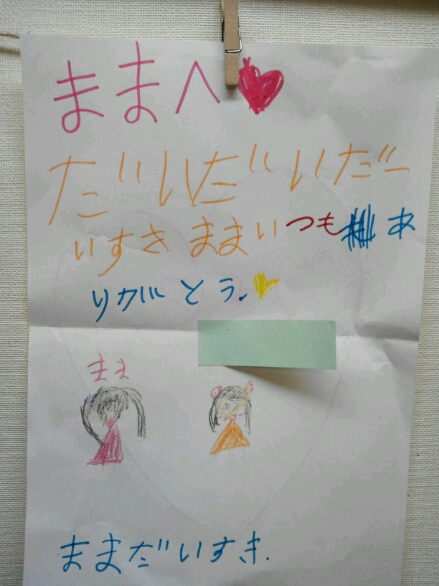 ままへ
だいだいいだー
いすき ままいつもあ
りがとう.
まま
ままだいすき.